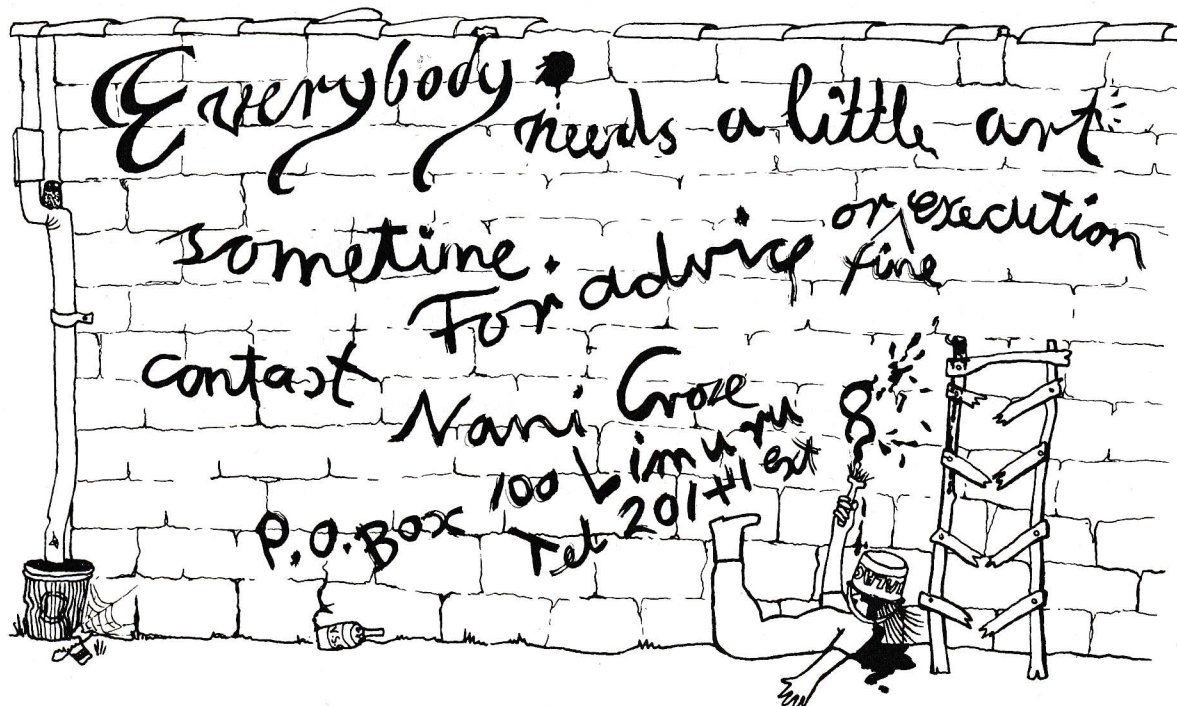 Everybody needs a little art
sometime. For advice or fine execution
contact Nani Croze
P.O. Box 100 Limuru
Tel 20141 ext 8